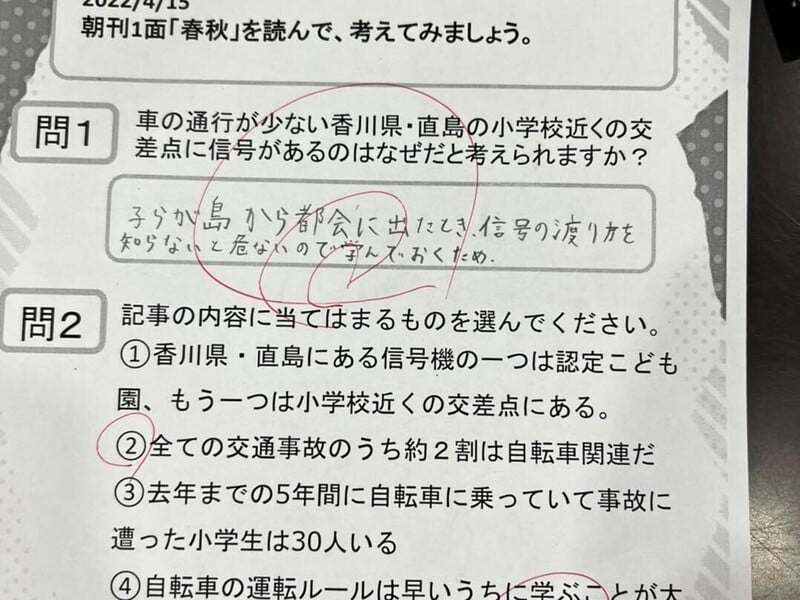 2022/4/15
朝刊1面「春秋」を読んで、考えてみましょう。
問1
車の通行が少ない香川県・直島の小学校近くの交
差点に信号があるのはなぜだと考えられますか？
子らが島から都会に出たとき、信号の渡り方を
知らないと危ないので学んでおくため.
問2
記事の内容に当てはまるものを選んでください。
①香川県・直島にある信号機の一つは認定こども
園、もう一つは小学校近くの交差点にある。
②全ての交通事故のうち約２割は自転車関連だ
③去年までの5年間に自転車に乗っていて事故に
遭った小学生は30人いる
④自転車の運転ルールは早いうちに学ぶことが大